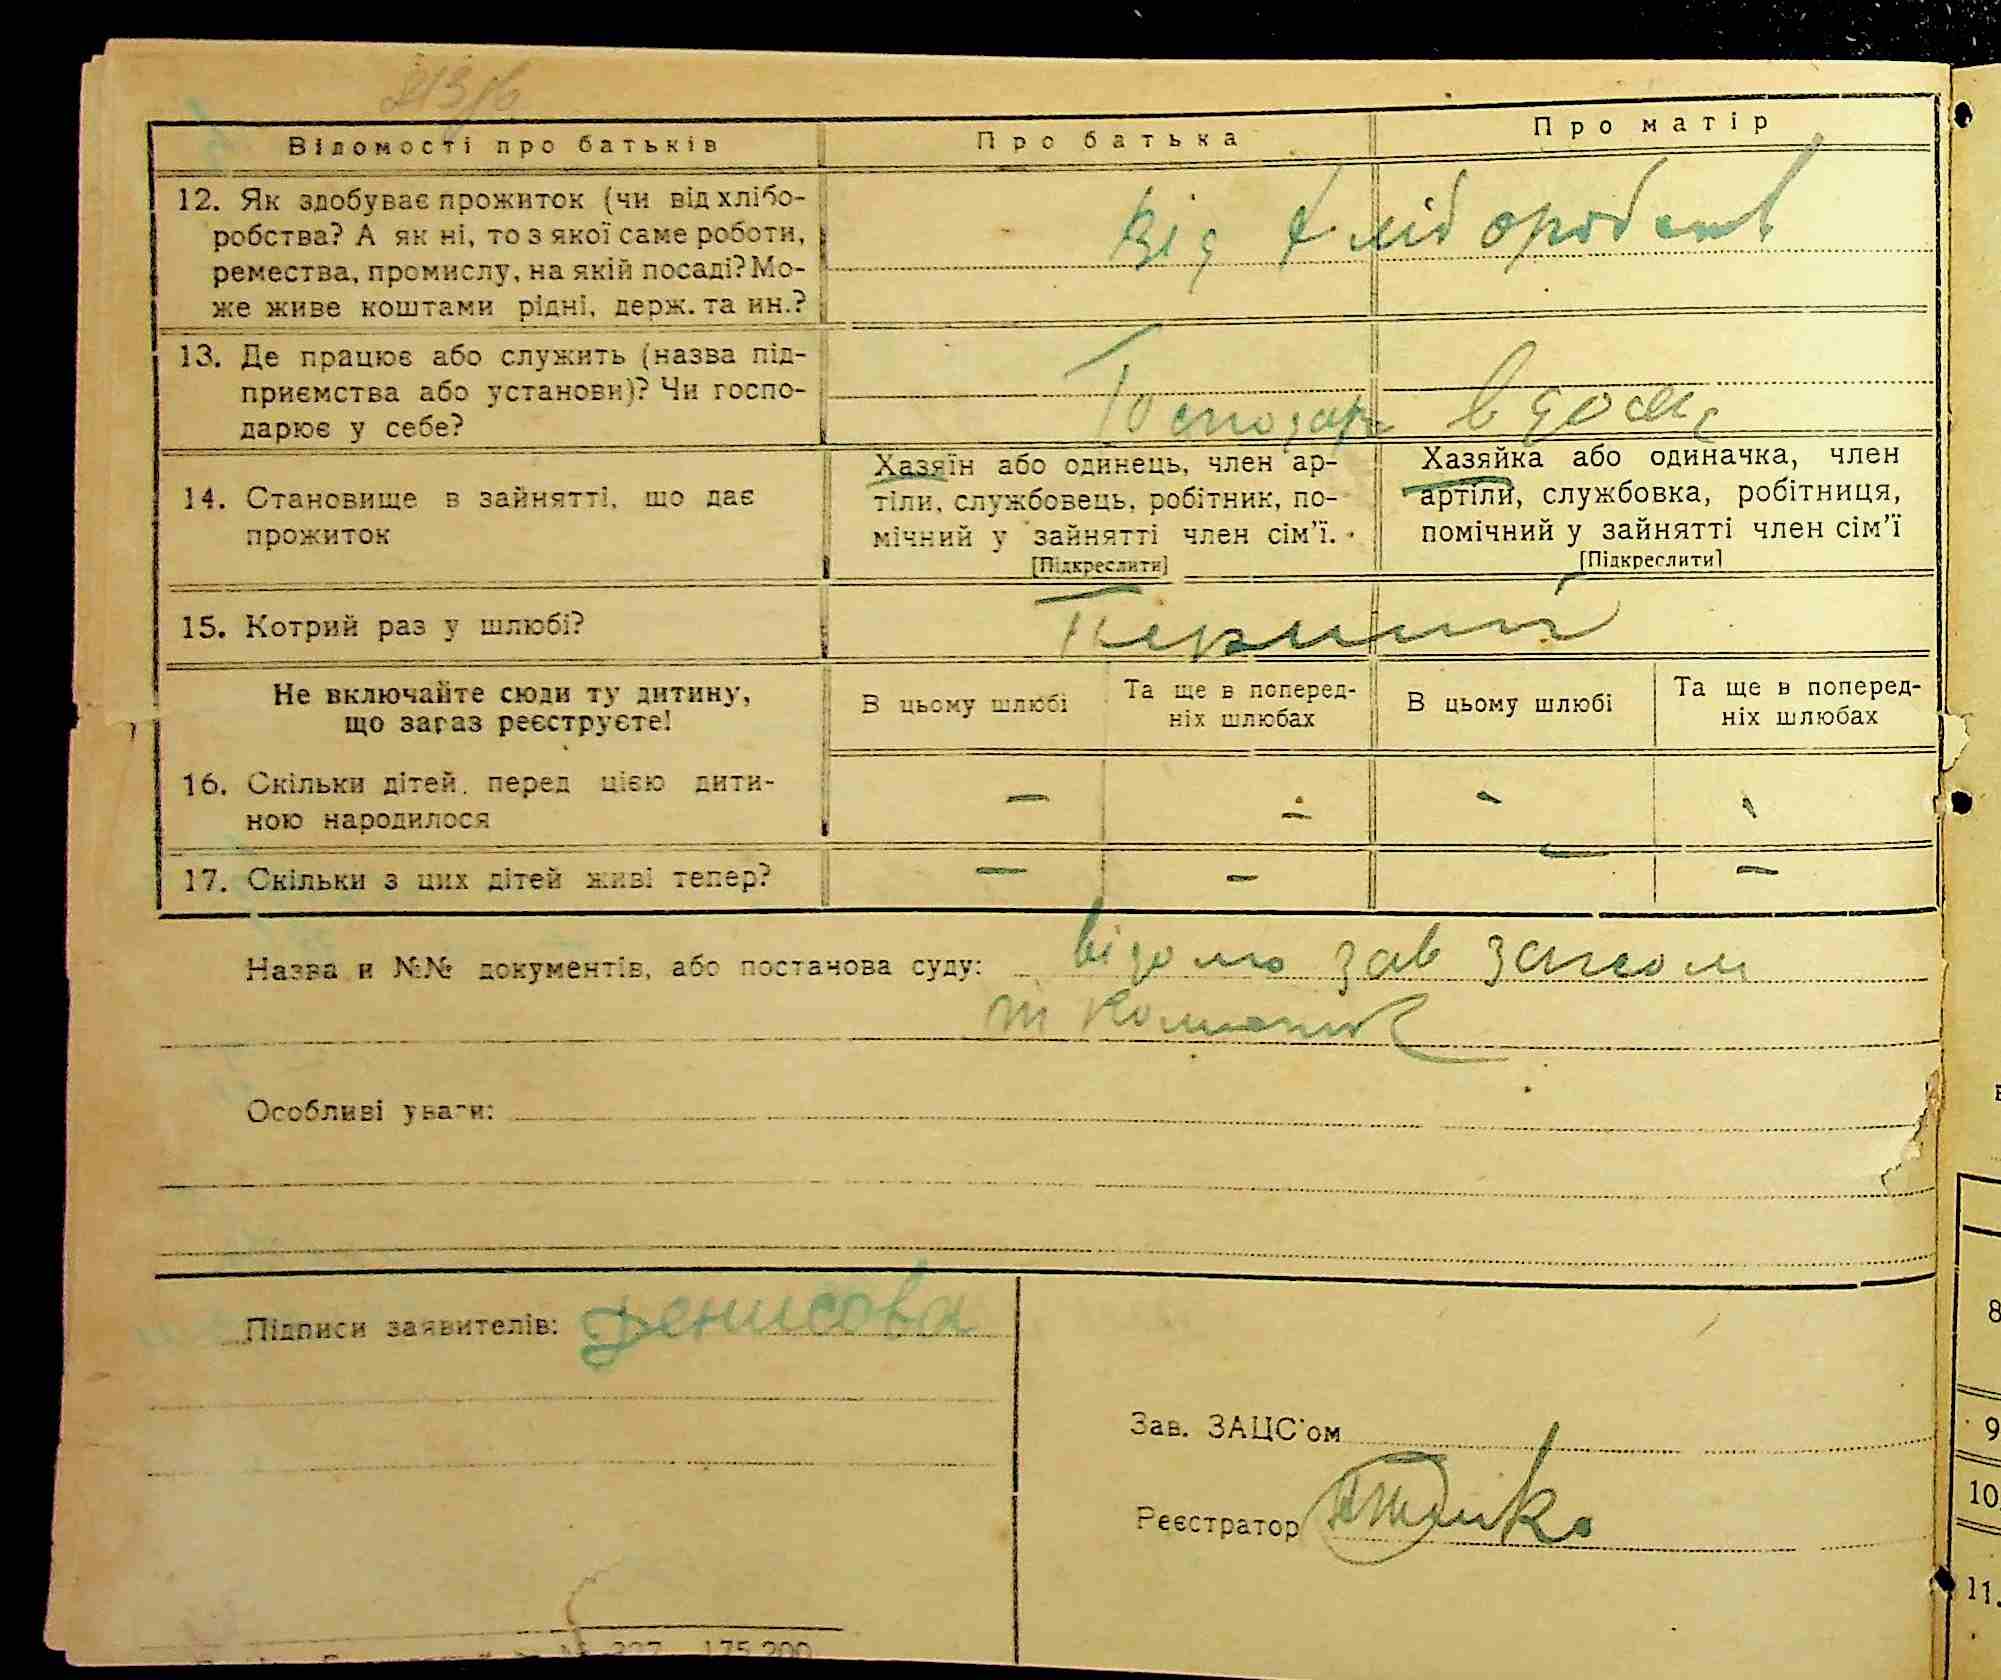 Відомості про батьків
Про батька
Про матір
12. Як здобуває прожиток (чи від хлібо-
робства? А як ні, то з якої саме роботи,
ремества, промислу, на якій посаді? Мо-
же живе коштами рідні, держ. та ин.?
від хліборобств
13. Де працює або служить (назва під-
приємства або установи)? Чи госпо-
дарює у себе?
Господар вдома
14. Становище в зайнятті, що дає
прожиток
Хазяїн або одинець, член ар-
тіли, службовець, робітник, по-
мічний у зайнятті член сім'ї.
[Підкреслити]
Хазяйка або одиначка, член
артіли, службовка, робітниця,
помічний у зайнятті член сім'ї
[Підкреслити]
15. Котрий раз у шлюбі?
Перший
Не включайте сюди ту дитину,
що зараз реєструєте!
В цьому шлюбі
Та ще в поперед-
ніх шлюбах
В цьому шлюбі
Та ще в поперед-
ніх шлюбах
16. Скільки дітей перед цією дити-
ною народилося
- - - -
17. Скільки з цих дітей живі тепер?
- - - -
Назва и №№ документів, або постанова суду: відомо зав загсом
Особливі уваги:
Підписи заявителів: Денисова
Зав. ЗАЦС'ом
Реєстратор
175.200
8
9
10
11.